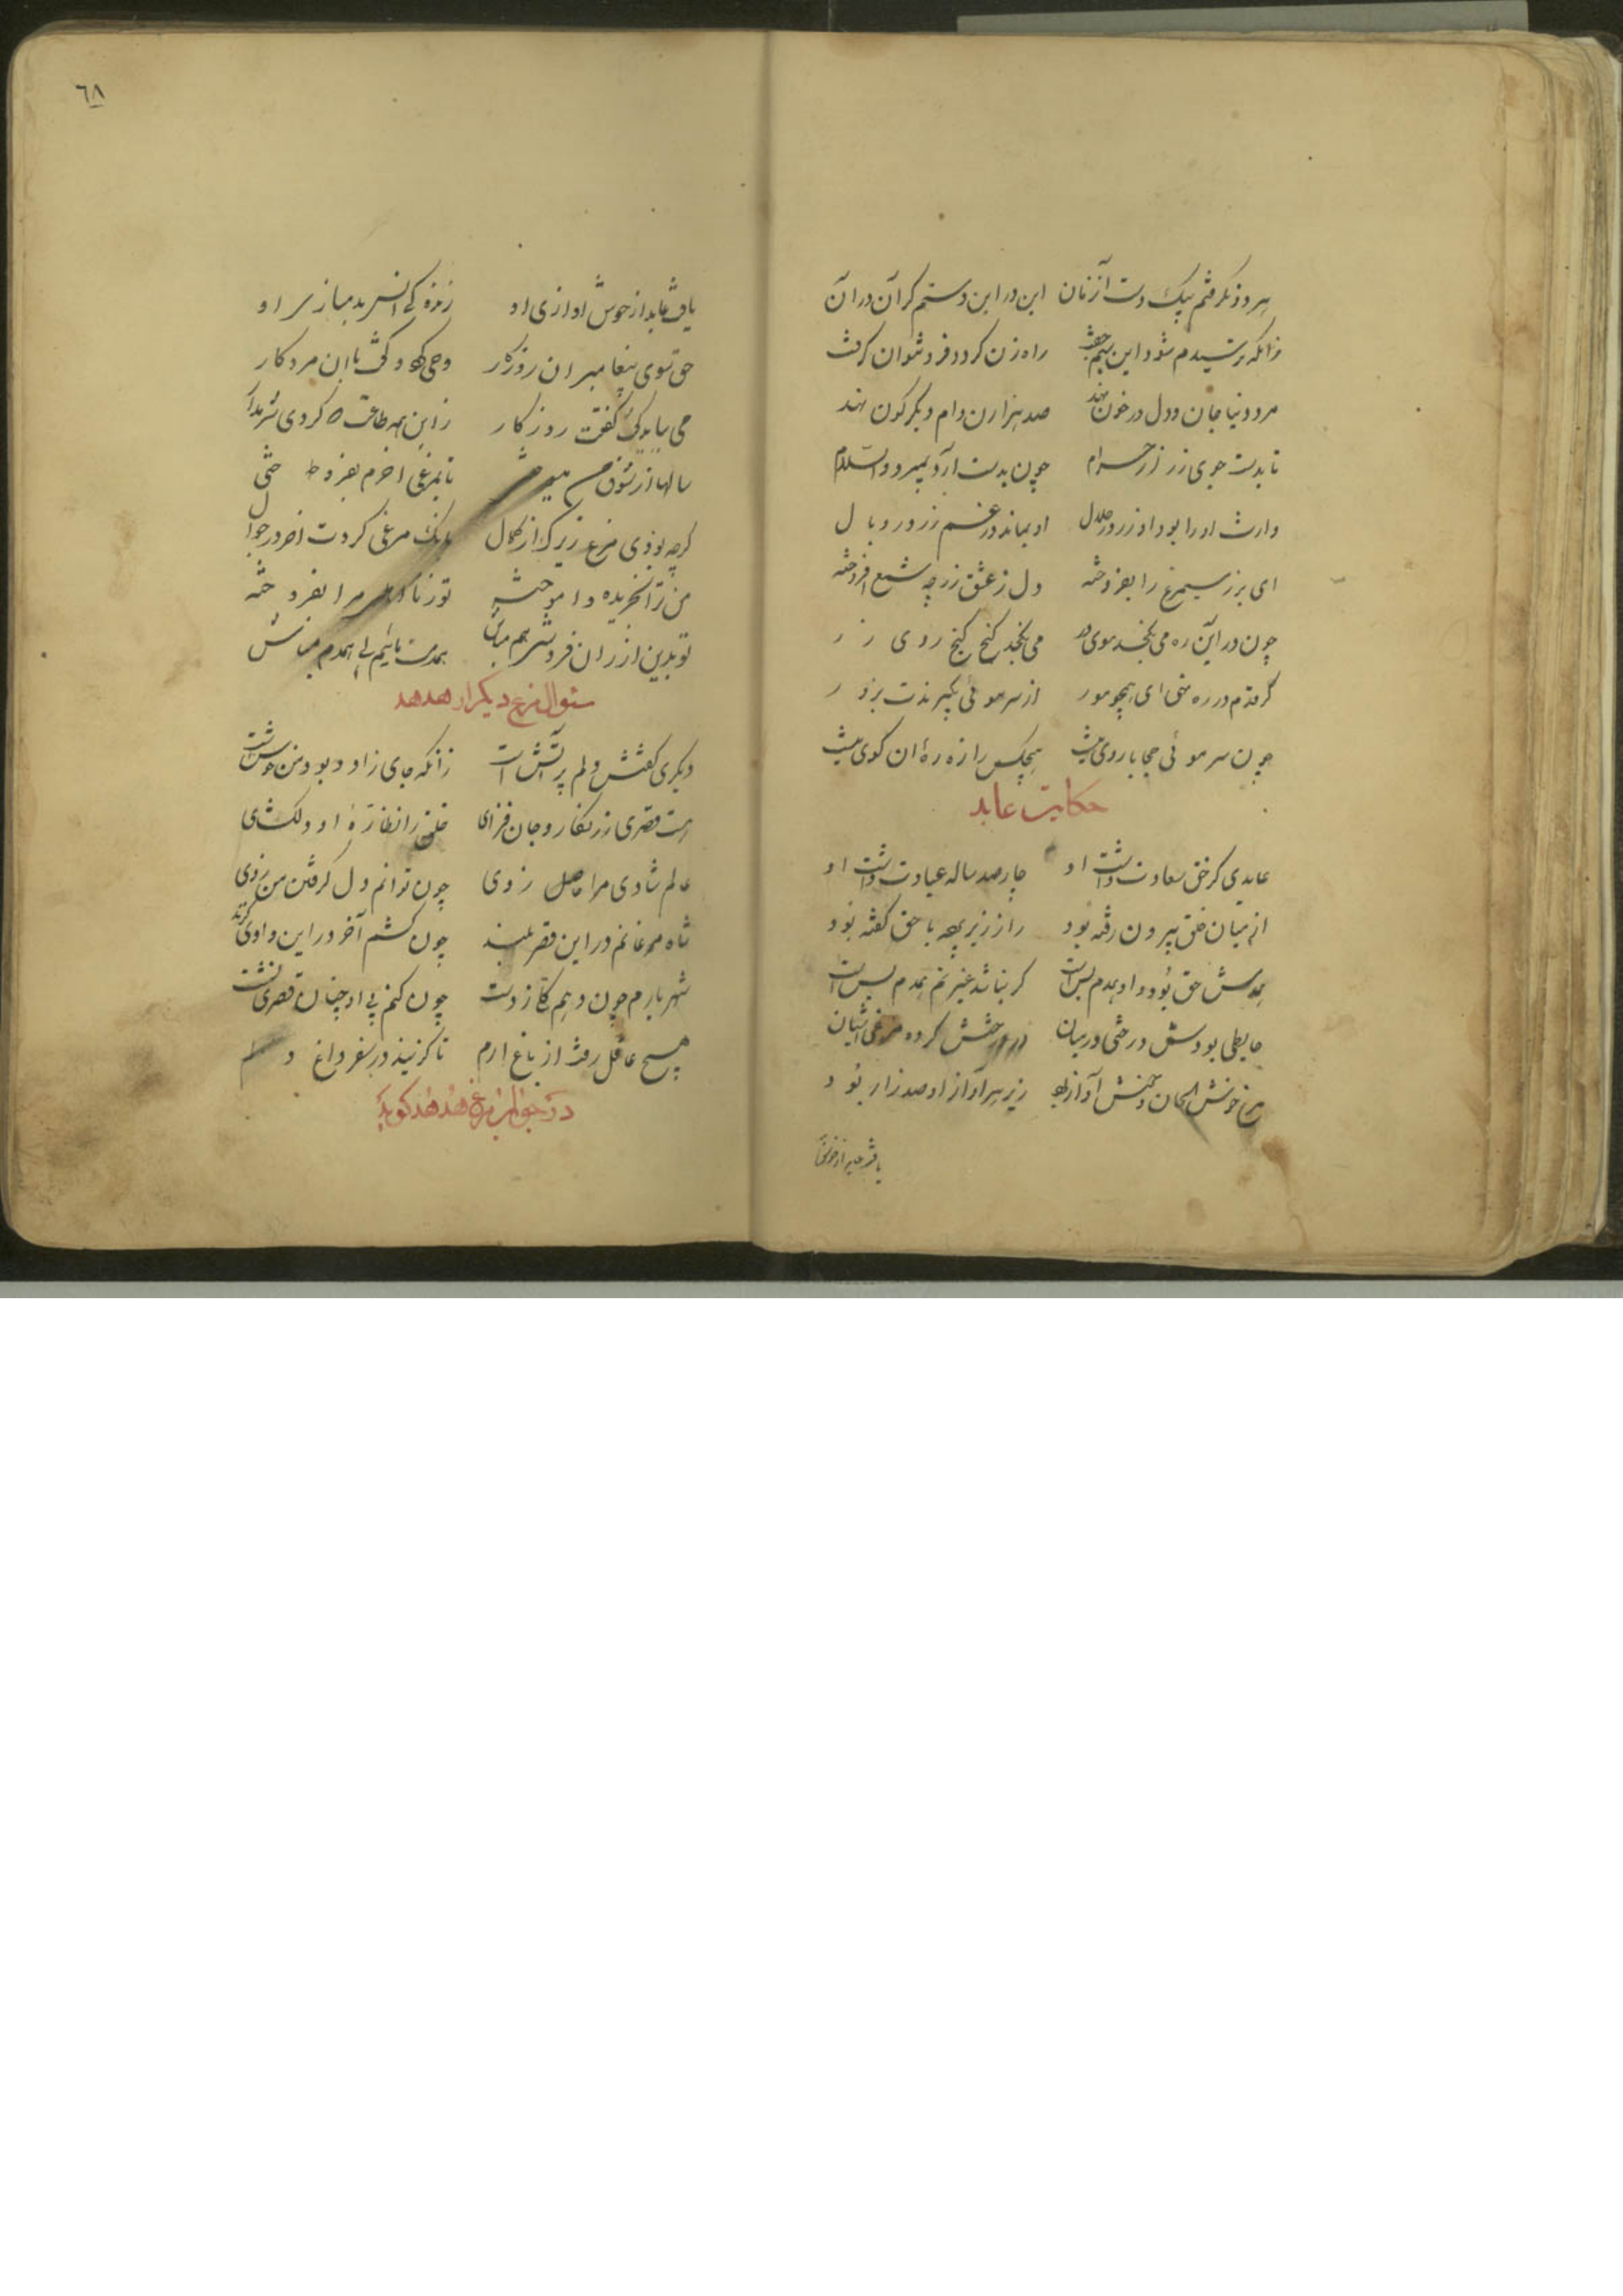 هر دو نگرفتم بیک دست آنزمان این در این دستم گر آن در آن
زانکه ترسیدم شود این بیم جفت راه زن گردد فرو نتوان گرفت
مرد دنیا جان و دل در خون نهد صد هزاران دام دیگر گون نهد
تا بدست جوی زر از حرام چون بدست آرد بمیرد والسلام
وارث او را بود او زر و حلال او بماند در غم زر و وبال
ای بزر سیمرغ را بفروخته دل ز عشق زر چه شمع افروخته
چون در این ره می نگنجد موی در می نگنجد گنج گنج روی زر
گر قدم در ره نهی ای همچو مور از سر موئی بگیرندت بزور
چون سر موئی محابا روی نیست هیچکس را زهره ان کوی نیست
حکایت عابد
عابدی کز حق سعادت داشت او چارصد ساله عبادت داشت او
از میان خلق بیرون رفته بود راز زیر پرده با حق گفته بود
همدمش حق بود و او همدم بس است گر نباشد غیر هم همدم بس است
حایطی بودش درختی در میان در درختش کرده مرغی اشیان
مرغ خوش الحان و خوش آواز بود زیر هر آواز او صد راز بود
یافت عابد از خوش
٦٨
یافت عابد از خوش اوازی او اندکی انس بدمسازی او
حق سوی پیغامبر ان روزگار وحی کرد و گفت با ان مرد کار
می بباید گفت روزگار ز این همه طاعت که کردی
سالها از شوق من میسوختی تا بمرغی اخرم بفروختی
گرچه بودی مرغ زیرک از کمال بانگ مرغی کردت اخر در جوال
من ترا بخریده و اموخته تو ز نا مرا بفروخته
تو بدین ارزان فروشی هم مباش همدمت مائیم بی همدم مباش
سئوال مرغ دیگر از هدهد
دیگری گفتش دلم پر آتش است زانکه جای زاد و بود من خوش است
هست قصری زرنگار و جان فزای خلق را نظاره او دلگشای
عالم شادی مرا حاصل ز وی چون توانم دل گرفتن من ز وی
شاه مرغانم در این قصر بلند چون کشم آخر در این وادی گزند
شهریارم چون دهم کل ز دست چون کنم بی او چنان قصری نشست
هیچ عاقل رفت از باغ ارم تا گزیند در سفر داغ و الم
در جواب مرغ هدهد گوید